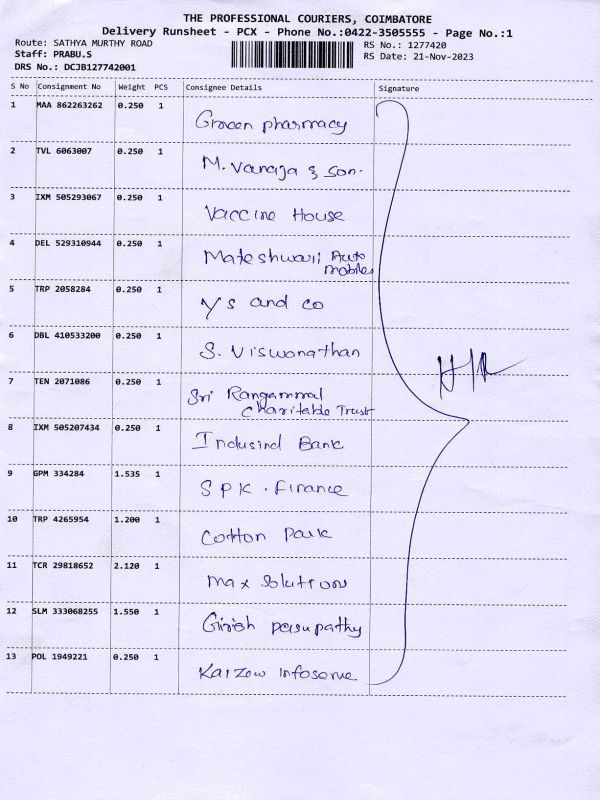 THE PROFESSIONAL COURIERS, COIMBATORE
Delivery Runsheet - PCX - Phone No.:0422-3505555 - Page No.:1
Route: SATHYA MURTHY ROAD RS No.: 1277420
Staff: PRABU.S RS Date: 21-Nov-2023
DRS No.: DCJB127742001
S No Consignment No Weight PCS Consignee Details Signature
1 MAA 862263262 0.250 1
Green pharmacy
2 TVL 6063007 0.250 1
M. Vanaja & Son.
3 IXM 505293067 0.250 1
Vaccine House
4 DEL 529310944 0.250 1
Mateshwari Auto
mobiles
5 TRP 2058284 0.250 1
YS and co
6 DBL 410533200 0.250 1
S. Viswonathan
7 TEN 2071086 0.250 1
Sri Rangammal
Charitable Trust
8 IXM 505207434 0.250 1
Indusind Bank
9 GPM 334284 1.535 1
SPK. Finance
10 TRP 4265954 1.200 1
Cotton Park
11 TCR 29818652 2.120 1
Max Solutions
12 SLM 333068255 1.550 1
Girish pasupathy
13 POL 1949221 0.250 1
Kaizow infoserve